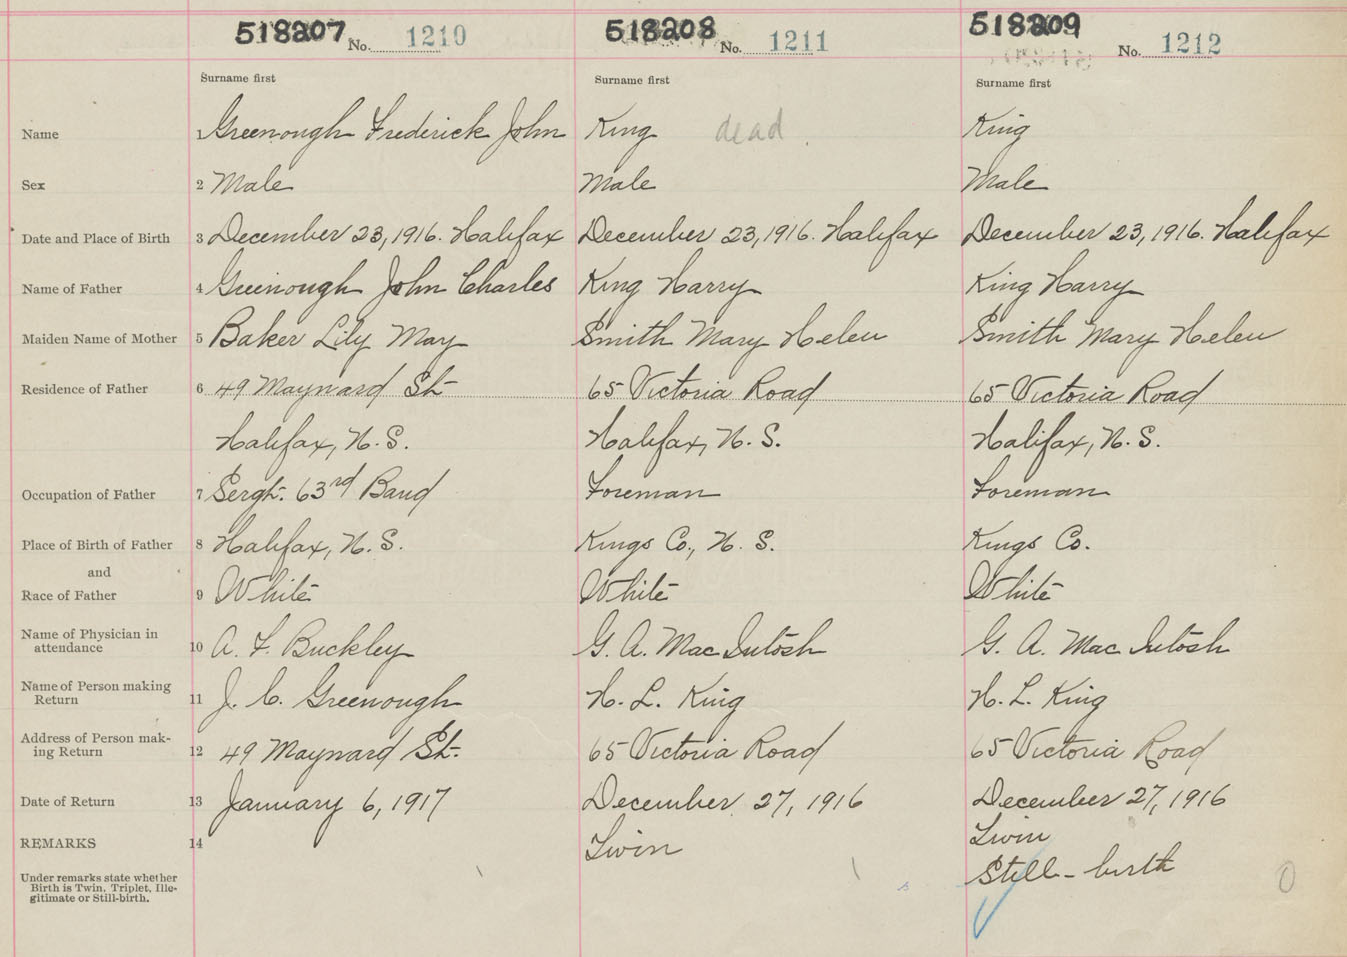 518207 No. 1210 518208 No. 1211 518209 No. 1212
Surname first Surname first Surname first
Name 1 Greenough Frederick John King dead King
Sex 2 Male Male Male
Date and Place of Birth 3 December 23, 1916. Halifax December 23, 1916. Halifax December 23, 1916. Halifax
Name of Father 4 Greenough John Charles King Harry King Harry
Maiden Name of Mother 5 Baker Lily May Smith Mary Helen Smith Mary Helen
Residence of Father 6 49 Maynard St 65 Victoria Road 65 Victoria Road
Halifax, N. S. Halifax, N. S. Halifax, N. S.
Occupation of Father 7 Sergt. 63rd Band Foreman Foreman
Place of Birth of Father 8 Halifax, N. S. Kings Co., N. S. Kings Co.
and
Race of Father 9 White White White
Name of Physician in
attendance 10 A. F. Buckley G. A. MacIntosh G. A. MacIntosh
Name of Person making
Return 11 J. C. Greenough H. L. King H. L. King
Address of Person mak-
ing Return 12 49 Maynard St. 65 Victoria Road 65 Victoria Road
Date of Return 13 January 6, 1917 December 27, 1916 December 27, 1916
REMARKS 14 Twin Twin
Under remarks state whether
Birth is Twin, Triplet, Ille-
gitimate or Still-birth.
Still-birth
0